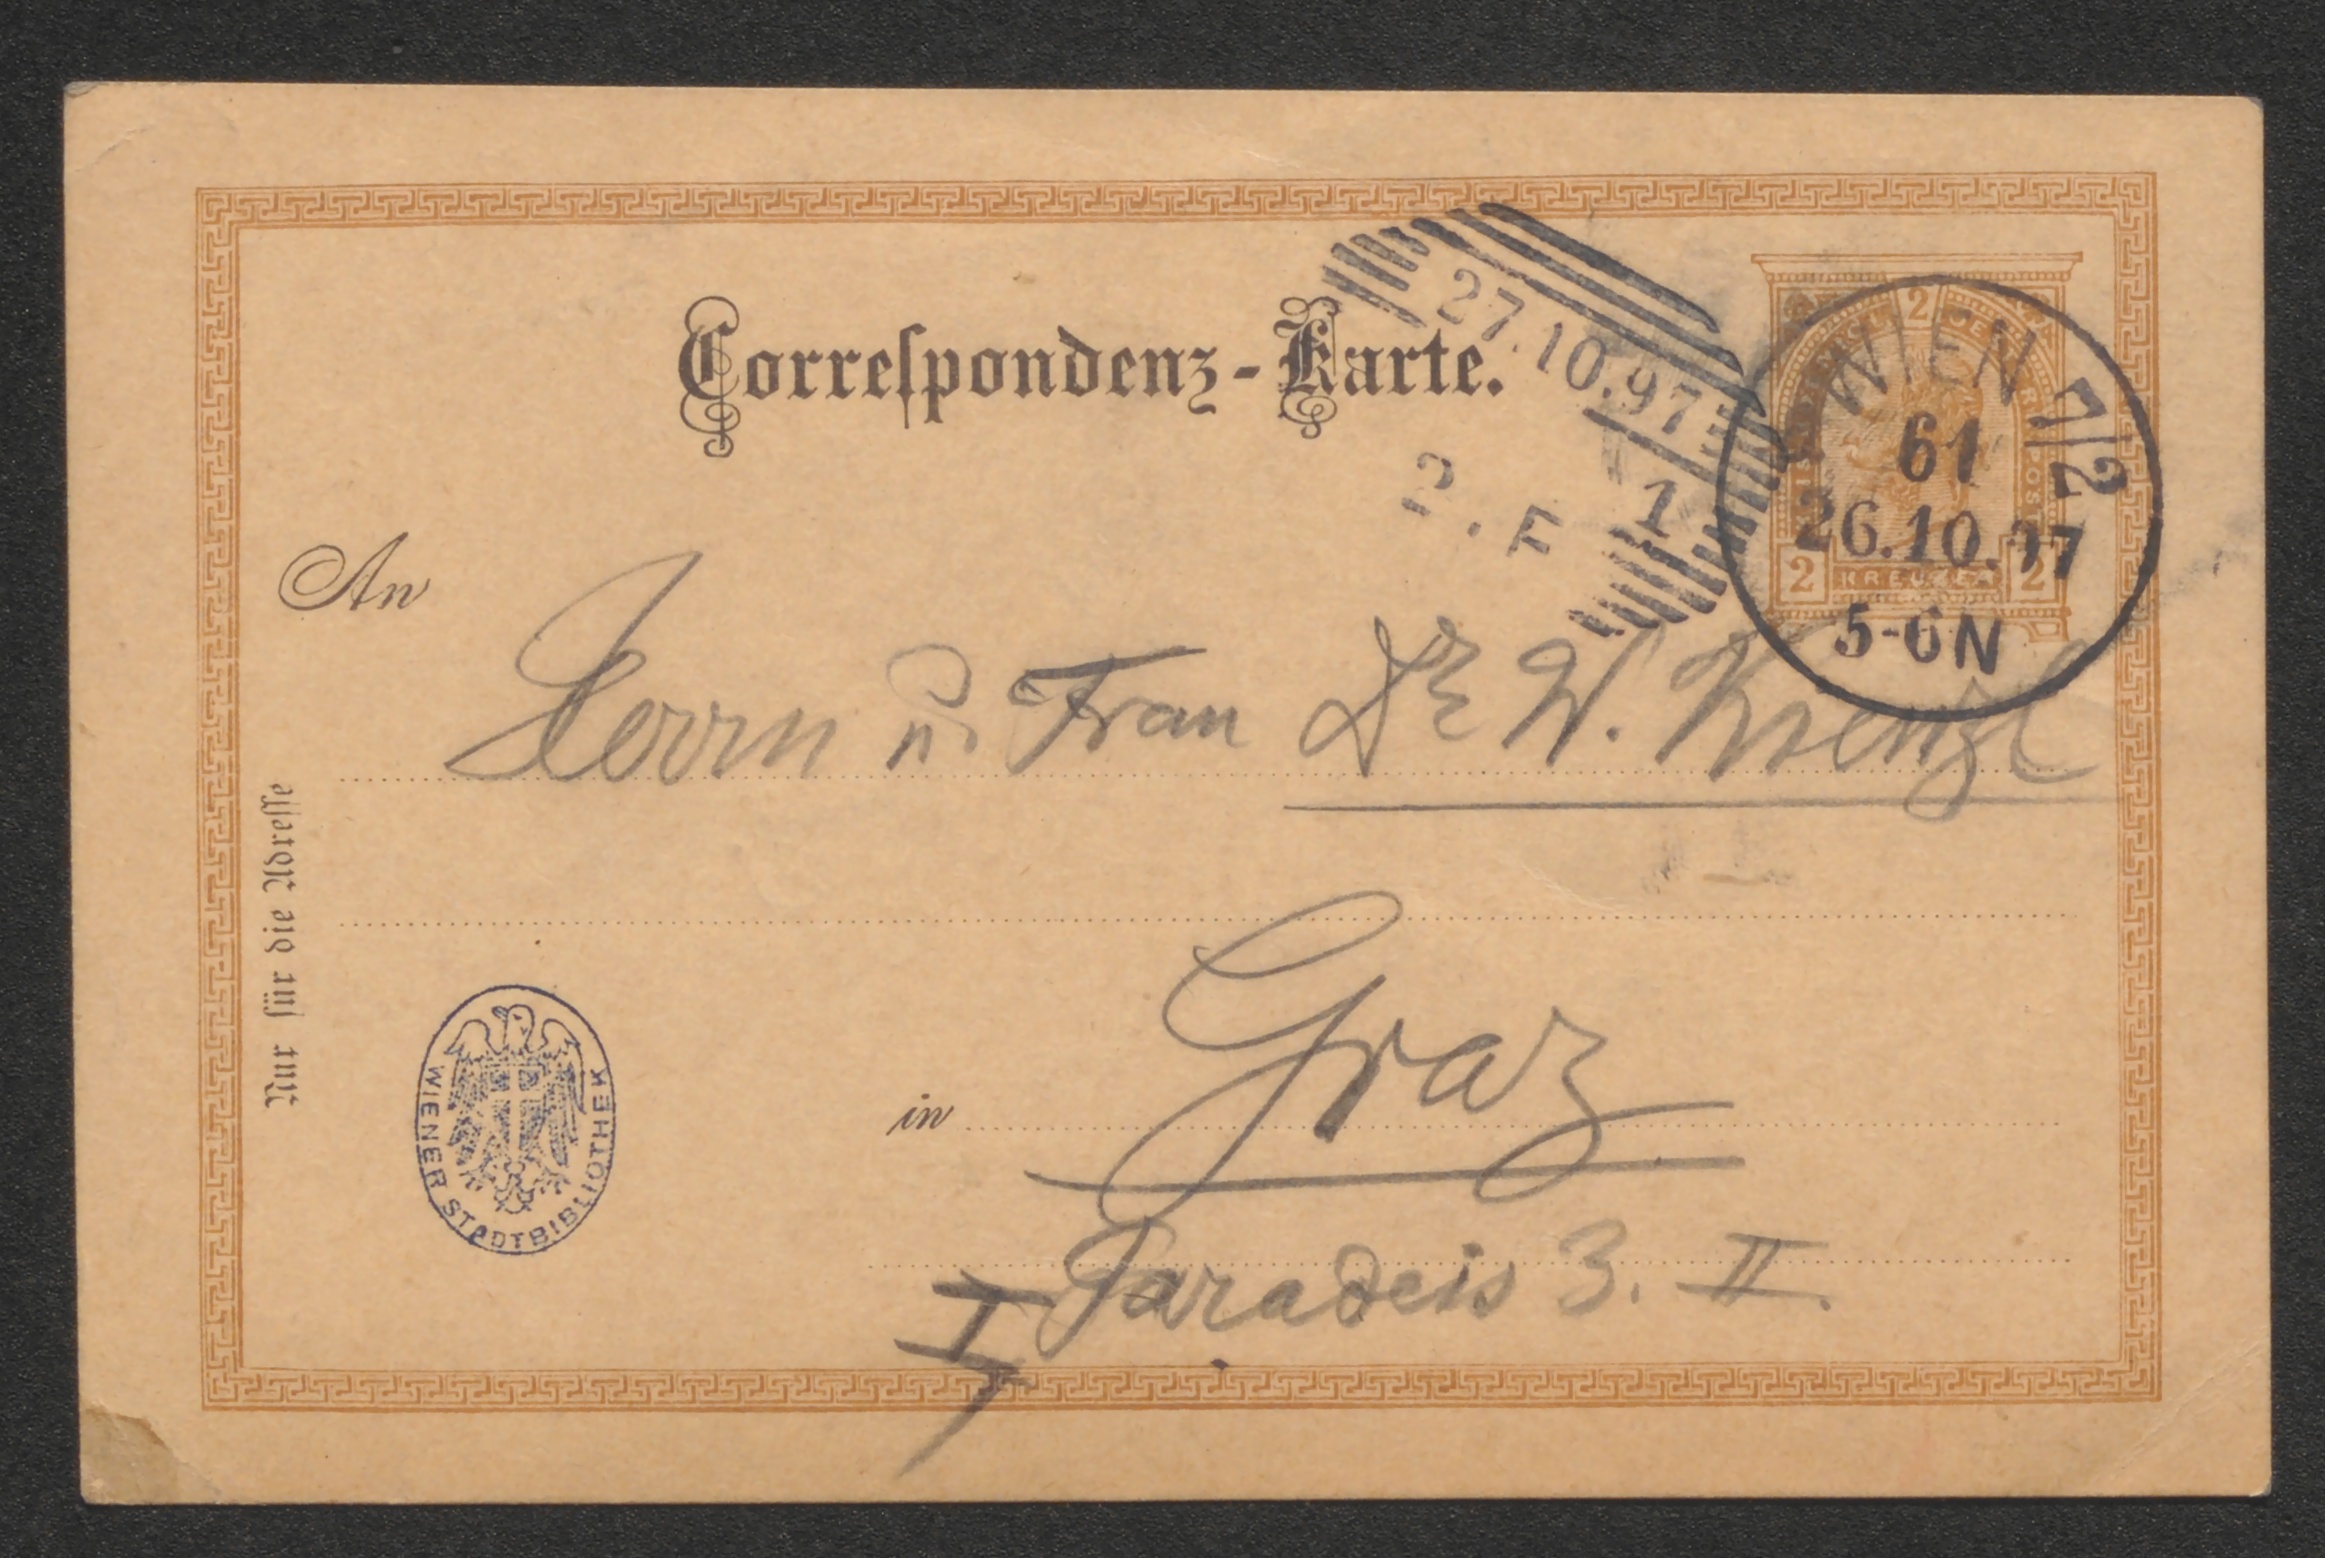 Correſpondenz-Karte.
27.10.97
1
. F
WIEN 7/2
61
26.10.97
5-6N
2
2 KREUZER 2
An
Herrn u. Frau Dr W. Kienzl
Nur für die Adreſſe
in Graz
I Paradeis 3. II.
WIENER STADTBIBLIOTHEK